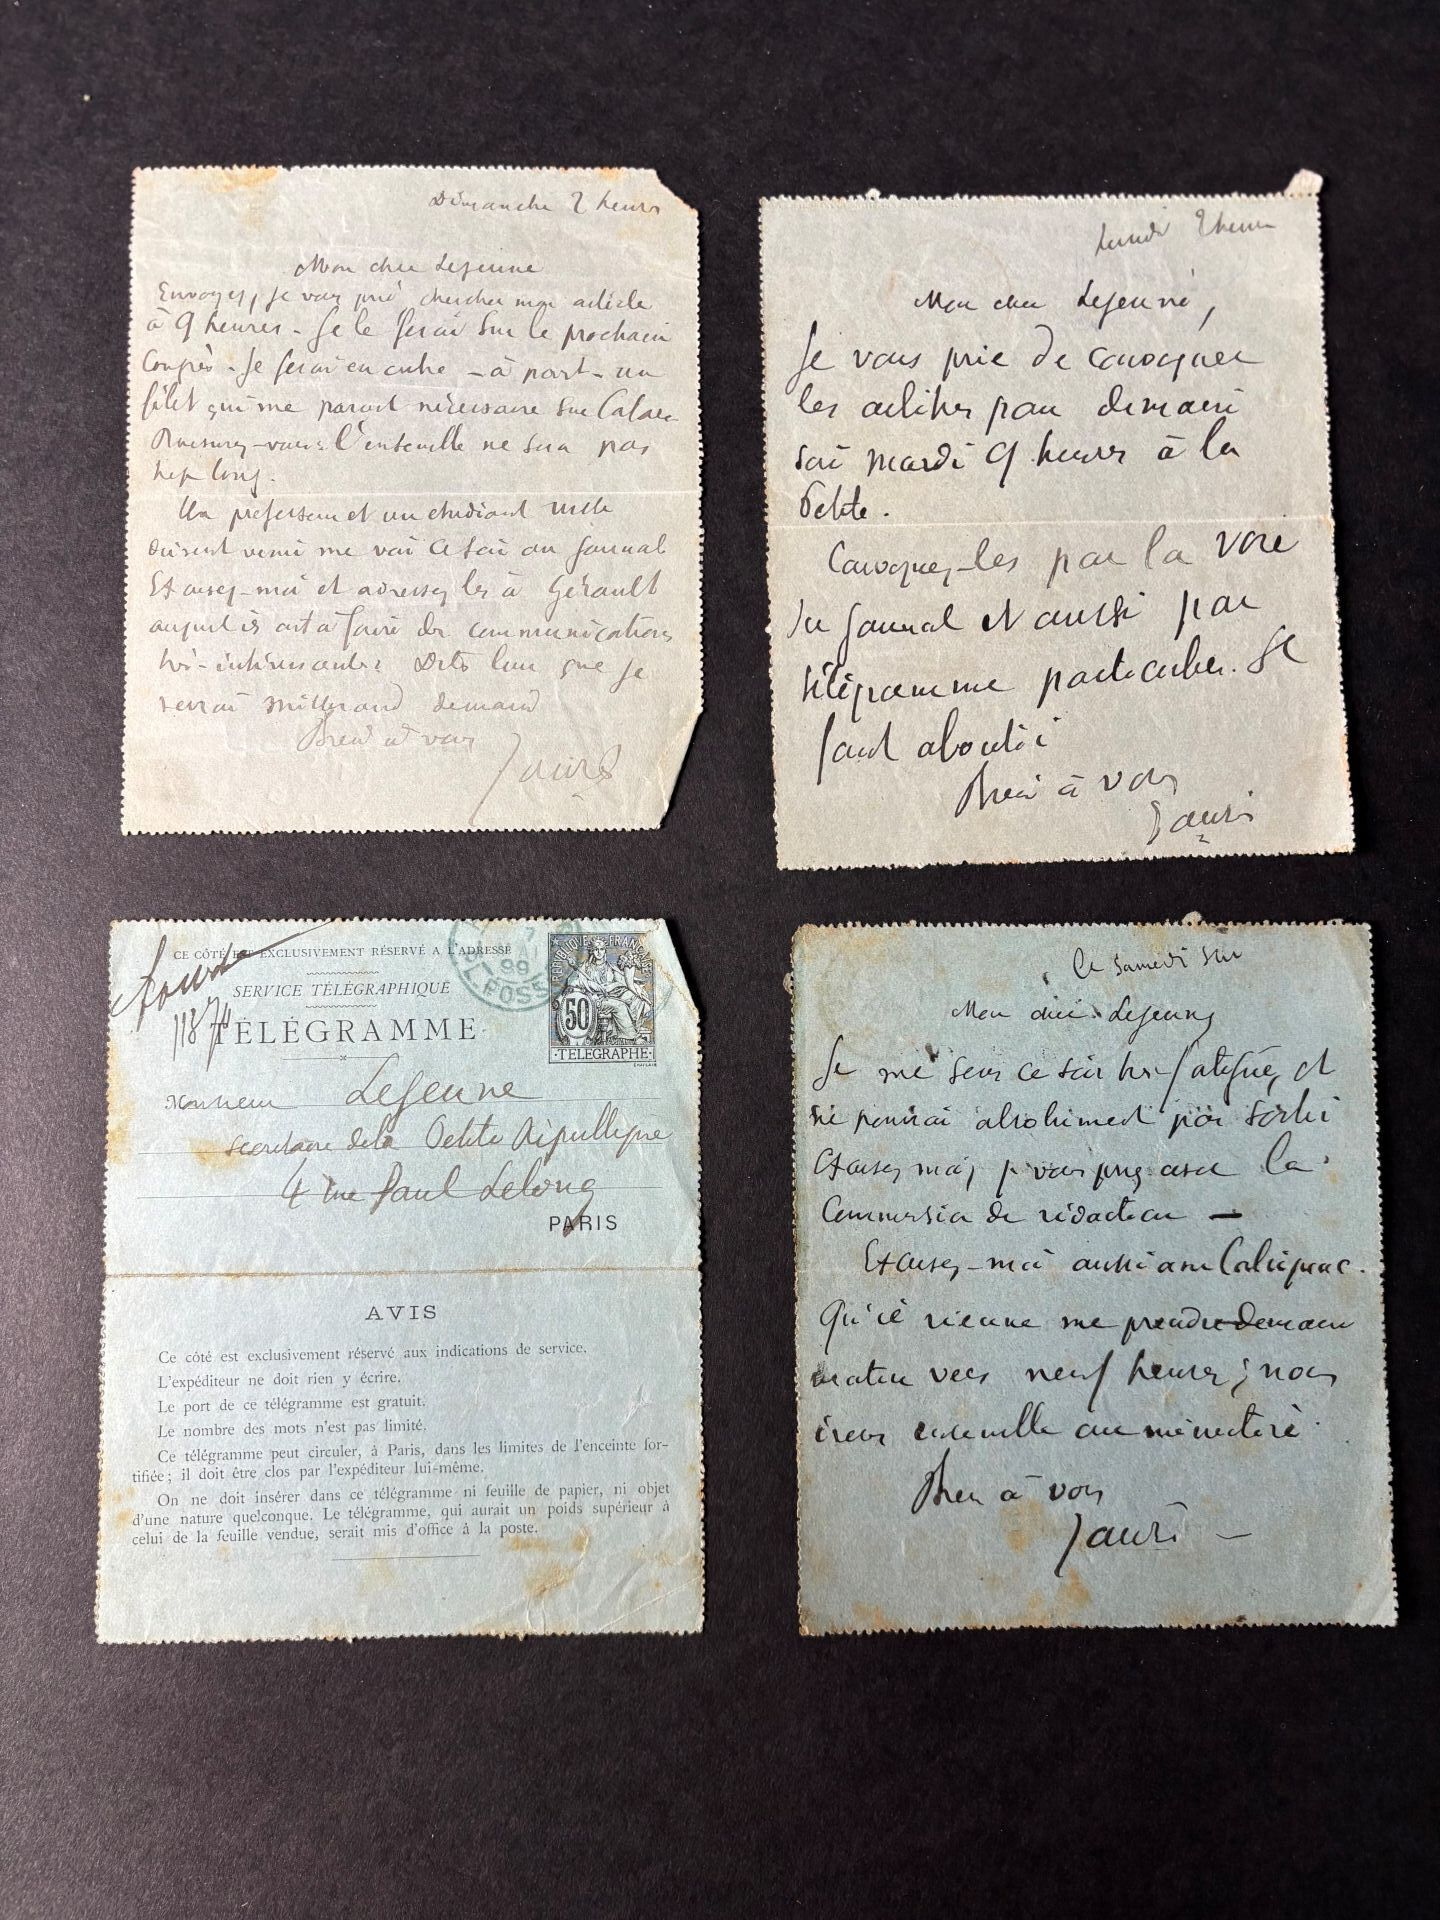 Dimanche 2 heures
Mon cher Lejeune
Envoyez, je vous prie, chercher mon article
à 9 heures. Je le ferai sur le prochain
Congrès. Je ferai en outre - à part - un
filet qui me parait nécessaire sur
Rassurez-vous: l'ensemble ne sera pas
trop long.
Un professeur et un étudiant
doivent venir me voir ce soir au journal
Excusez-moi et adressez les à Gérault
auquel ils ont à faire des communications
très-intéressantes. Dites leur que je
verrai Millerand demain
Bien à vous
Jaurès
Lundi 2 heures
Mon cher Lejeune,
Je vous prie de convoquer
les arbitres pour demain
soir mardi 9 heures à la
Petite.
Convoquez-les par la voie
du journal et aussi par
télégramme particulier. Il
faut aboutir
Bien à vous
Jaurès
CE CÔTÉ EST EXCLUSIVEMENT RÉSERVÉ A L'ADRESSE
SERVICE TÉLÉGRAPHIQUE
11874
TÉLÉGRAMME
99
RÉPUBLIQUE FRANÇAISE
50
TÉLÉGRAPHE
Monsieur Lejeune
Secrétaire de la Petite République
4 rue Paul Lelong
PARIS
AVIS
Ce côté est exclusivement réservé aux indications de service.
L'expéditeur ne doit rien y écrire.
Le port de ce télégramme est gratuit.
Le nombre des mots n'est pas limité.
Ce télégramme peut circuler, à Paris, dans les limites de l'enceinte for-
tifiée; il doit être clos par l'expéditeur lui-même.
On ne doit insérer dans ce télégramme ni feuille de papier, ni objet
d'une nature quelconque. Le télégramme, qui aurait un poids supérieur à
celui de la feuille vendue, serait mis d'office à la poste.
Ce samedi soir
Mon cher Lejeune
Je me sens ce soir très fatigué, et
ne pourrai absolument pas sortir
Excusez moi, je vous prie, avec la
Commission de rédaction —
Excusez-moi aussi avec
Qu'il vienne me prendre demain
matin vers neuf heures; nous
irons ensemble au ministère
Bien à vous
Jaurès —